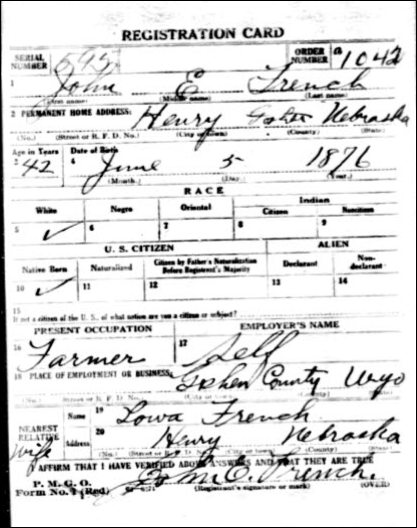 REGISTRATION CARD
SERIAL NUMBER ORDER NUMBER 1042
1 John E French
(First name) (Middle name) (Last name)
2 PERMANENT HOME ADDRESS: Henry Nebraska
(No.) (Street or R. F. D. No.) (City or town) (County) (State)
Age in Years Date of Birth
3 42 4 June 5 1876
(Month.) (Day.) (Year.)
RACE
White Negro Oriental Indian
Citizen Noncitizen
5 ✓ 6 7 8 9
U. S. CITIZEN ALIEN
Native Born Naturalized Citizen by Father's Naturalization Before Registrant's Majority Declarant Non-declarant
10 ✓ 11 12 13 14
15
If not a citizen of the U. S., of what nation are you a citizen or subject?
PRESENT OCCUPATION EMPLOYER'S NAME
16 Farmer 17 Self
18 PLACE OF EMPLOYMENT OR BUSINESS: Goshen County Wyo
(No.) (Street or R. F. D. No.) (City or town) (County) (State)
NEAREST RELATIVE Name 19 Lowa French
wife Address 20 Henry Nebraska
(No.) (Street or R. F. D. No.) (City or town) (County) (State)
I AFFIRM THAT I HAVE VERIFIED ABOVE ANSWERS AND THAT THEY ARE TRUE
P. M. G. O.
Form No. 1 (Red) John E. French.
(Registrant's signature or mark) (OVER)